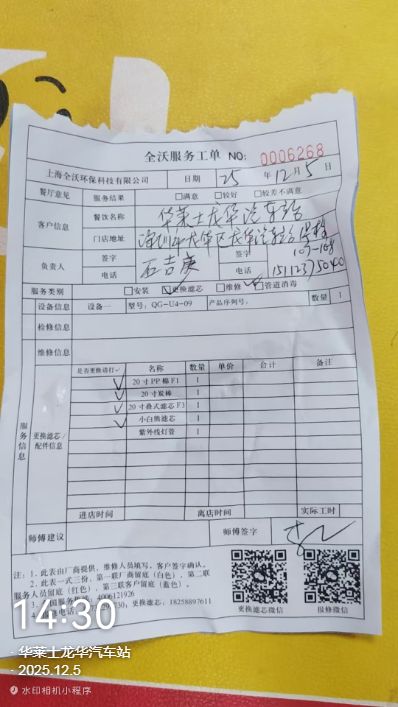 全沃服务工单 NO: 0006268
上海全沃环保科技有限公司 日期 25 年 12 月 5 日
餐厅意见 服务结果 □满意 □较好 □差不满意
客户信息 餐饮名称 华莱士龙华汽车站
门店地址 深圳市龙华区龙华汽车站
负责人 签字 石吉庚 签字
电话 电话
服务类别 □安装 ☑更换滤芯 □维修 □管道消毒
设备信息 设备一 型号: QG-U4-09 产品序列号: 数量 1
检修信息
维修信息
服务信息 更换滤芯/配件信息
是否更换请打√ 名称 数量 单价 合计 备注
✓ 20寸PP棉F1 1
✓ 20寸炭棒 1
✓ 20寸叠式滤芯F3 1
✓ 小白熊滤芯 1
紫外线灯管 1
进店时间 离店时间 实际工时
师傅建议 师傅签字
注: 1. 此表由厂商提供, 维修人员填写, 客户签字确认。
2. 此表一式三份, 第一联厂商留底(白色), 第二联
服务人员留底(红色), 第三联客户留底(蓝色)。
4006121926
18258897611
更换滤芯微信 报修微信
14:30
· 华莱士龙华汽车站
· 2025.12.5
水印相机小程序